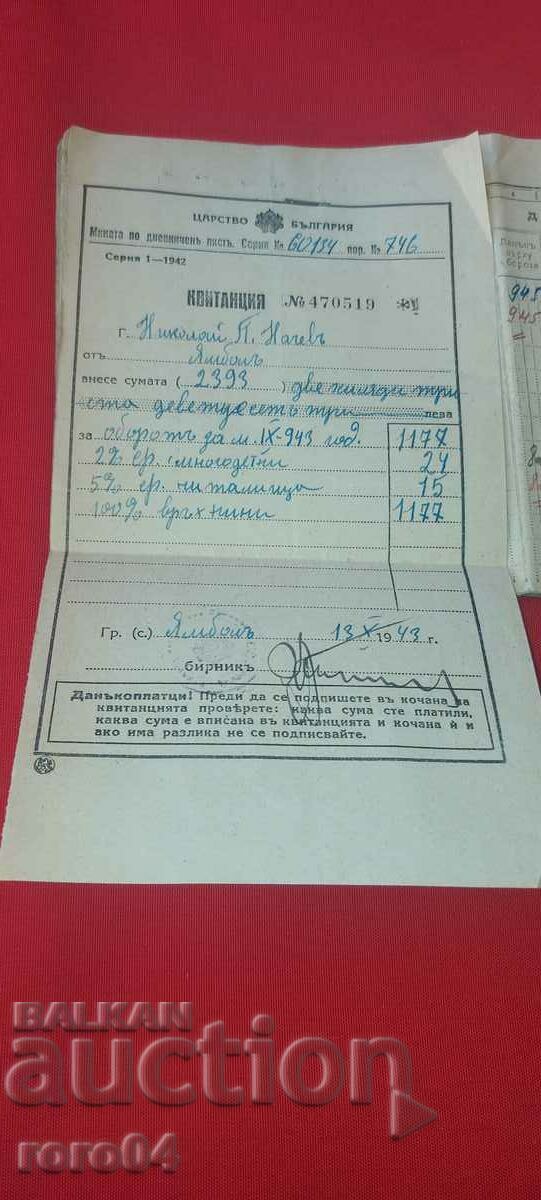 ЦАРСТВО БЪЛГАРИЯ
Мината по дневниченъ листъ. Серия № 60154 пор. № 746
Серия 1—1942
КВИТАНЦИЯ № 470519
Г. Николай П. Начевъ
отъ Ямболъ
внесе сумата ( 2393 ) две хиляди три
ста деветдесетъ три лева
за оборотъ за м. IX-943 год. 1177
2% ср. многодетни 24
5% ср. читалища 15
100% връхнини 1177
Гр. (с.) Ямболъ 13 X 1943 г.
бирникъ
Данъкоплатци! Преди да се подпишете въ кочана на
квитанцията провѣрете: каква сума сте платили,
каква сума е вписана въ квитанцията и кочана ѝ и
ако има разлика не се подписвайте.
Д
945
945
BALKAN
auction
roro04